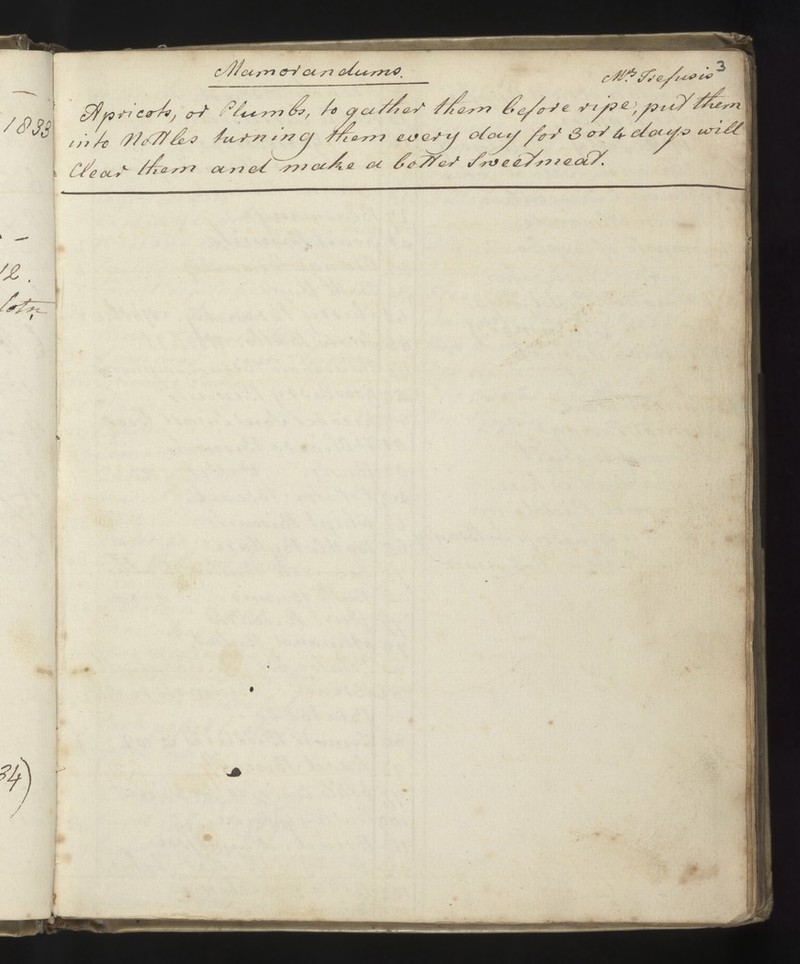 Mamorandums. Mrs Trefusis 3
Apricots, or Plumbs, to gather them before ripe, put them
into Nettles turning them every day for 3 or 4 days will
Clear them and make a better Sweetmeat.
1833
12.
34)